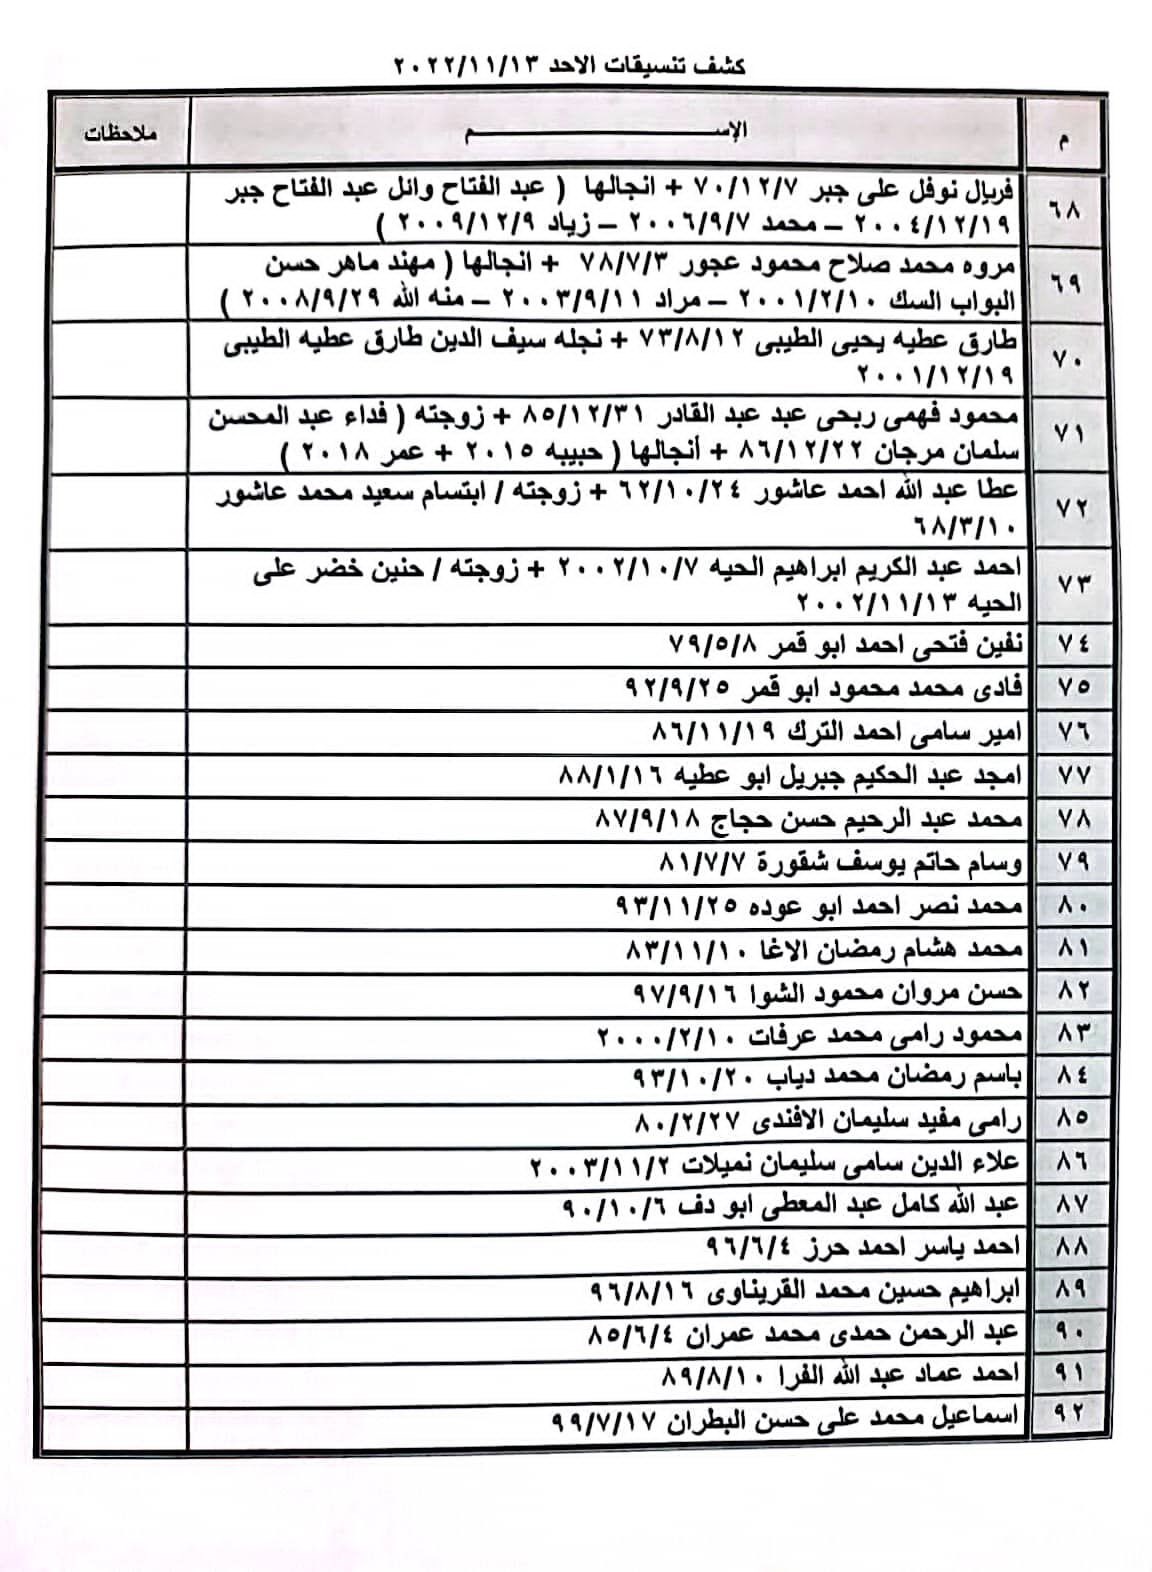 كشف تنسيقات الاحد ٢٠٢٢/١١/١٣
م الإســـــــــم ملاحظات
٦٨ فريال نوفل على جبر ٧٠/١٢/٧ + انجالها ( عبد الفتاح وائل عبد الفتاح جبر
٢٠٠٤/١٢/١٩ – محمد ٢٠٠٦/٩/٧ – زياد ٢٠٠٩/١٢/٩ )
٦٩ مروه محمد صلاح محمود عجور ٧٨/٧/٣ + انجالها ( مهند ماهر حسن
البواب السك ٢٠٠١/٢/١٠ – مراد ٢٠٠٣/٩/١١ – منه الله ٢٠٠٨/٩/٢٩ )
٧٠ طارق عطيه يحيى الطيبى ٧٣/٨/١٢ + نجله سيف الدين طارق عطيه الطيبى
٢٠٠١/١٢/١٩
٧١ محمود فهمى ربحى عبد عبد القادر ٨٥/١٢/٣١ + زوجته ( فداء عبد المحسن
سلمان مرجان ٨٦/١٢/٢٢ + أنجالها ( حبيبه ٢٠١٥ + عمر ٢٠١٨ )
٧٢ عطا عبد الله احمد عاشور ٦٢/١٠/٢٤ + زوجته / ابتسام سعيد محمد عاشور
٦٨/٣/١٠
٧٣ احمد عبد الكريم ابراهيم الحيه ٢٠٠٢/١٠/٧ + زوجته / حنين خضر على
الحيه ٢٠٠٢/١١/١٣
٧٤ نفين فتحى احمد ابو قمر ٧٩/٥/٨
٧٥ فادى محمد محمود ابو قمر ٩٢/٩/٢٥
٧٦ امير سامى احمد الترك ٨٦/١١/١٩
٧٧ امجد عبد الحكيم جبريل ابو عطيه ٨٨/١/١٦
٧٨ محمد عبد الرحيم حسن حجاج ٨٧/٩/١٨
٧٩ وسام حاتم يوسف شقورة ٨١/٧/٧
٨٠ محمد نصر احمد ابو عوده ٩٣/١١/٢٥
٨١ محمد هشام رمضان الاغا ٨٣/١١/١٠
٨٢ حسن مروان محمود الشوا ٩٧/٩/١٦
٨٣ محمود رامى محمد عرفات ٢٠٠٠/٢/١٠
٨٤ باسم رمضان محمد دياب ٩٣/١٠/٢٠
٨٥ رامى مفيد سليمان الافندى ٨٠/٢/٢٧
٨٦ علاء الدين سامى سليمان نميلات ٢٠٠٣/١١/٢
٨٧ عبد الله كامل عبد المعطى ابو دف ٩٠/١٠/٦
٨٨ احمد ياسر احمد حرز ٩٦/٦/٤
٨٩ ابراهيم حسين محمد القريناوى ٩٦/٨/١٦
٩٠ عبد الرحمن حمدى محمد عمران ٨٥/٦/٤
٩١ احمد عماد عبد الله الفرا ٨٩/٨/١٠
٩٢ اسماعيل محمد على حسن البطران ٩٩/٧/١٧